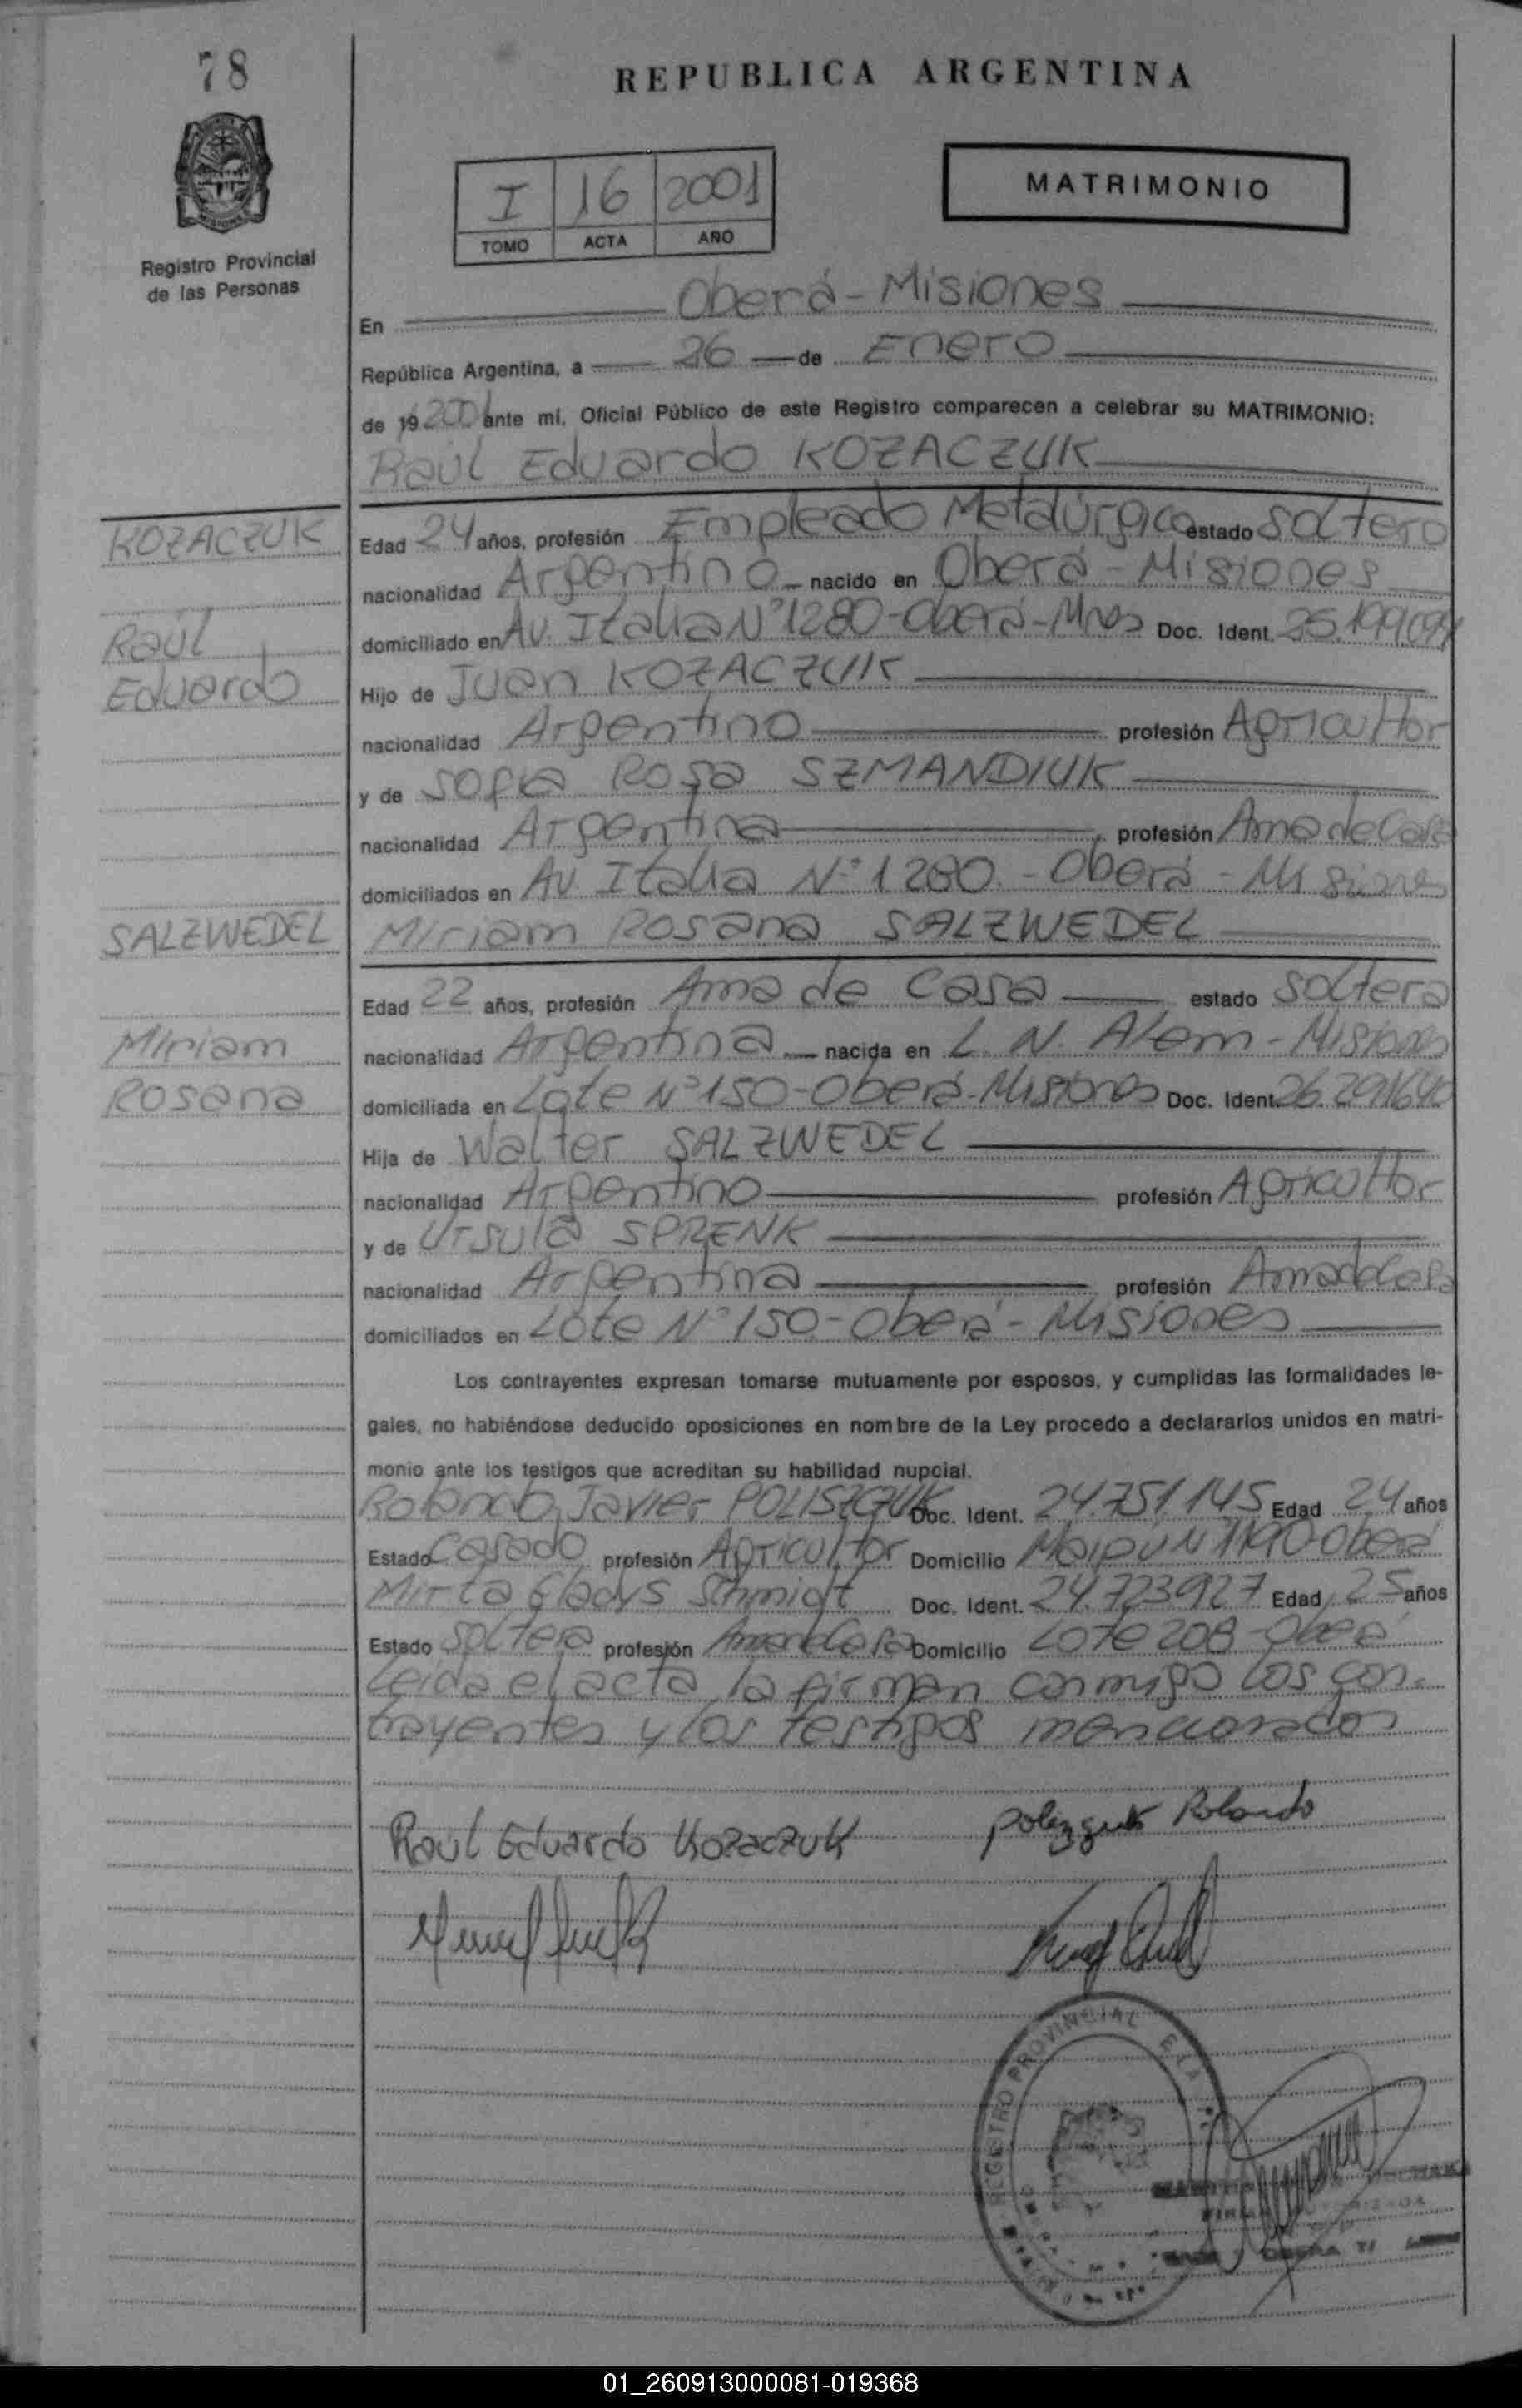 78
REPUBLICA ARGENTINA
I 16 2001
TOMO ACTA AÑO
MATRIMONIO
Registro Provincial
de las Personas
En Oberá - Misiones
República Argentina, a 26 de Enero
de 19 2001 ante mí, Oficial Público de este Registro comparecen a celebrar su MATRIMONIO:
Raúl Eduardo KOZACZUK
KOZACZUK
Edad 24 años, profesión Empleado Metalúrgico estado Soltero
nacionalidad Argentino nacido en Oberá - Misiones
Raúl
domiciliado en Av. Italia Nº 1280 - Oberá - Mnes Doc. Ident.
Eduardo
Hijo de Juan KOZACZUK
nacionalidad Argentino profesión Agricultor
y de Sofia Rosa SZMANDIUK
nacionalidad Argentina profesión Ama de Casa
domiciliados en Av. Italia Nº 1280 - Oberá - Misiones
SALZWEDEL
Miriam Rosana SALZWEDEL
Edad 22 años, profesión Ama de Casa estado Soltera
Miriam
nacionalidad Argentina nacida en L. N. Alem - Misiones
Rosana
domiciliada en Lote Nº 150 - Oberá - Misiones Doc. Ident. 26.291640
Hija de Walter SALZWEDEL
nacionalidad Argentino profesión Agricultor
y de Ursula SPRENK
nacionalidad Argentina profesión Ama de Casa
domiciliados en Lote Nº 150 - Oberá - Misiones
Los contrayentes expresan tomarse mutuamente por esposos, y cumplidas las formalidades le-
gales, no habiéndose deducido oposiciones en nombre de la Ley procedo a declararlos unidos en matri-
monio ante los testigos que acreditan su habilidad nupcial.
Rolando Javier POLISZCZUK Doc. Ident. 24.751.145 Edad 24 años
Estado Casado profesión Agricultor Domicilio Maipú N 1190 Oberá
Mirta Gladys Schmidt Doc. Ident. 24.723927 Edad 25 años
Estado Soltera profesión Ama de Casa Domicilio Lote 208 - Oberá
Leida el acta la firman conmigo los con-
trayentes y los testigos mencionados
Raúl Eduardo Kozaczuk
Rolando
REGISTRO PROVINCIAL
01_260913000081-019368